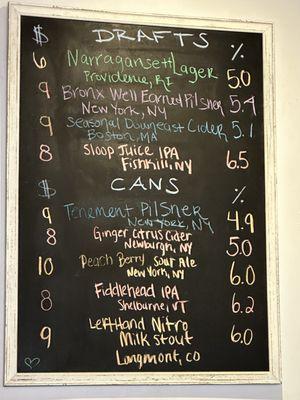 $ DRAFTS %
6 Narragansett Lager 5.0
Providence, RI
9 Bronx Well Earned Pilsner 5.4
New York, NY
9 Seasonal Downeast Cider 5.1
Boston, MA
8 Sloop Juice IPA 6.5
Fishkill, NY
$ CANS %
9 Tenement Pilsner 4.9
New York, NY
8 Ginger Citrus Cider 5.0
Newburgh, NY
10 Peach Berry Sour Ale 6.0
New York, NY
8 Fiddlehead IPA 6.2
Shelburne, VT
9 Left Hand Nitro 6.0
Milk Stout
Longmont, CO